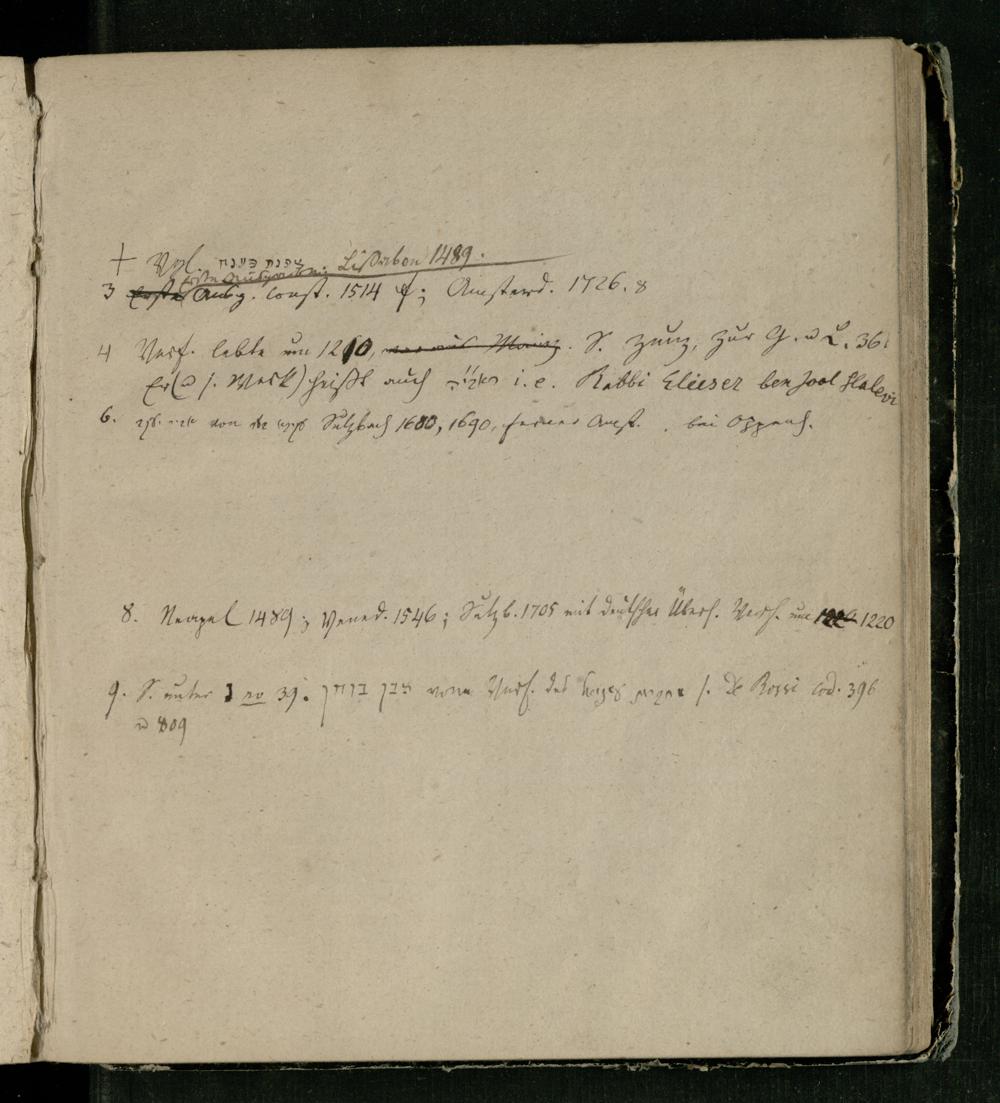 + Vgl. צפנת פענח
Erste Ausgaben: Lissabon 1489.
3 Erste Ausg. Const. 1514 f; Amsterd. 1726. 8
4 Verf. lebte um 1210, war aus Mainz. S. Zunz, zur G. u L. 36.
Er (u s. Werk) heißt auch ראבי"ה i.e. Rabbi Elieser ben Joel Halevi
6. von Sulzbach 1680, 1690, ferner Amst. bei Oppenh.
8. Neapel 1489; Vened. 1546; Sulzb. 1705 mit deutscher Übers. Verf. um 1220
9. S. unter no 39. אבן בוחן vom Verf. des s. De Rossi cod. 396
u 809